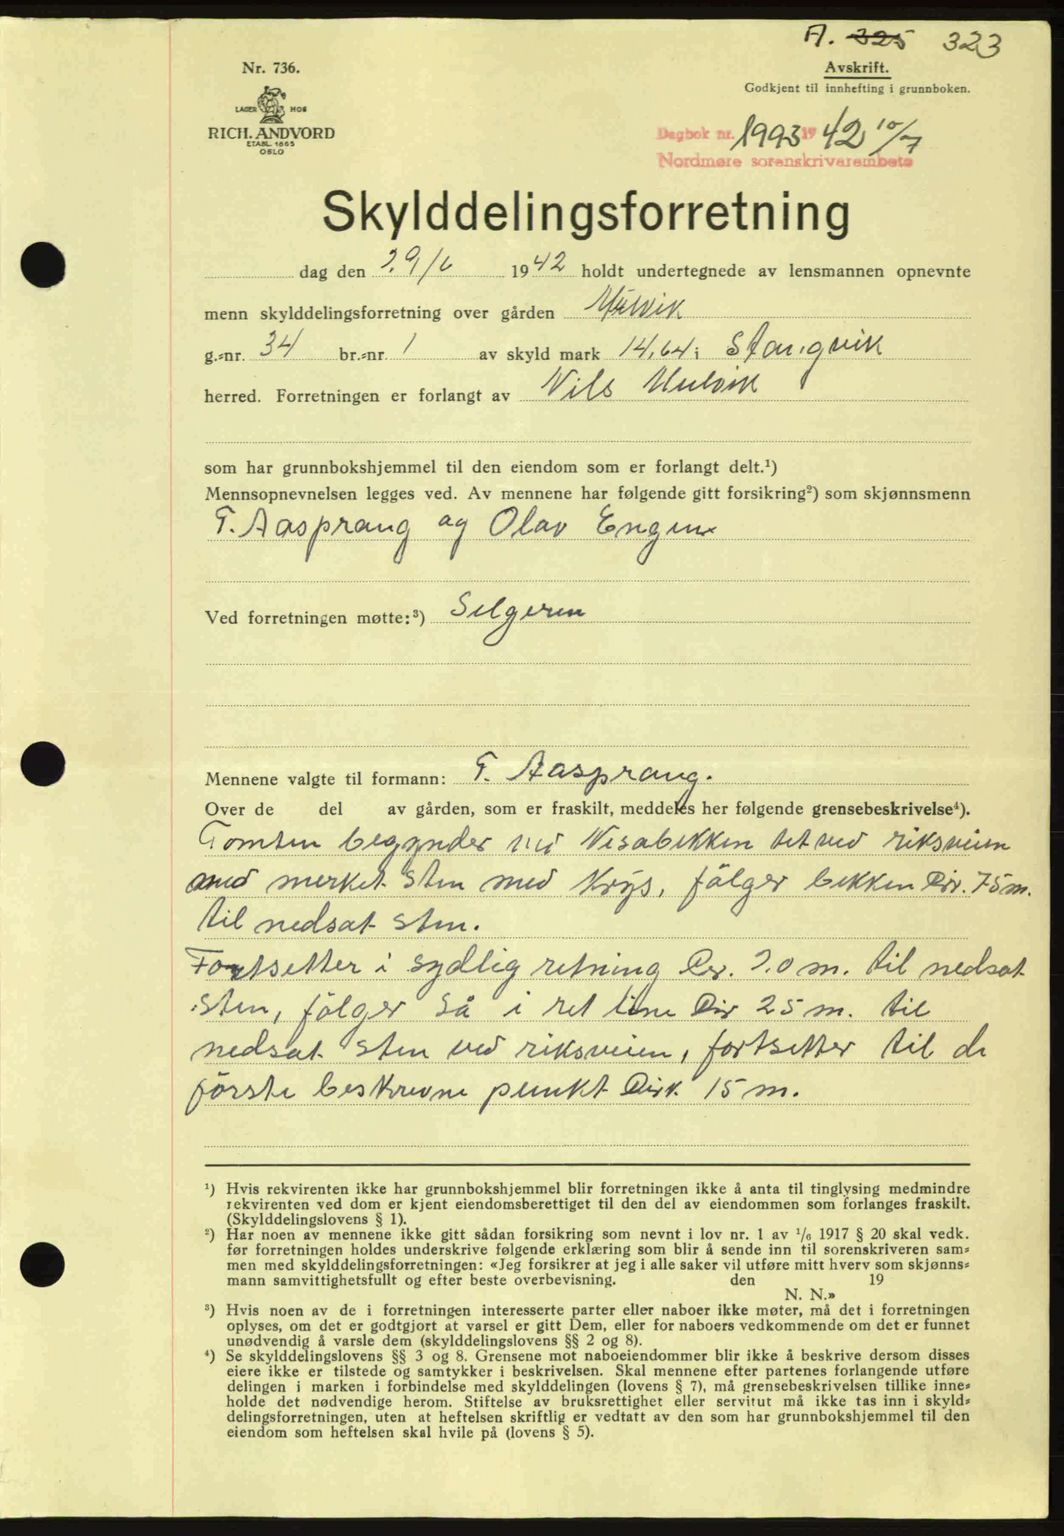 A. 325 323
Nr. 736.
Avskrift.
Godkjent til innhefting i grunnboken.
LAGER HOS
RICH. ANDVORD
ETABL. 1865
OSLO
Dagbok nr. 1993 19 42 10/7
Nordmøre sorenskriverembete
Skylddelingsforretning
dag den 29/6 1942 holdt undertegnede av lensmannen opnevnte
menn skylddelingsforretning over gården Mulvik
g.=nr. 34 br.=nr. 1 av skyld mark 14,64 i Stangvik
herred. Forretningen er forlangt av Nils Mulvik
som har grunnbokshjemmel til den eiendom som er forlangt delt.¹)
Mennsopnevnelsen legges ved. Av mennene har følgende gitt forsikring²) som skjønnsmenn
T. Aasprang og Olav Engen
Ved forretningen møtte:³) Selgeren
Mennene valgte til formann: T. Aasprang.
Over de del av gården, som er fraskilt, meddeles her følgende grensebeskrivelse⁴).
Tomten begynder ved Nesabekken tet ved riksveien
med merket sten med Krys, følger bekken Cir. 75 m.
til nedsat sten.
Fortsetter i sydlig retning Cir. 20 m. til nedsat
sten, følger så i ret line Cir 25 m. til
nedsat sten ved riksveien, fortsetter til de
første beskrevne punkt Cirk. 15 m.
¹) Hvis rekvirenten ikke har grunnbokshjemmel blir forretningen ikke å anta til tinglysing medmindre
rekvirenten ved dom er kjent eiendomsberettiget til den del av eiendommen som forlanges fraskilt.
(Skylddelingslovens § 1).
²) Har noen av mennene ikke gitt sådan forsikring som nevnt i lov nr. 1 av ¹/₆ 1917 § 20 skal vedk.
før forretningen holdes underskrive følgende erklæring som blir å sende inn til sorenskriveren sam=
men med skylddelingsforretningen: «Jeg forsikrer at jeg i alle saker vil utføre mitt hverv som skjønns=
mann samvittighetsfullt og efter beste overbevisning. den 19
N. N.»
³) Hvis noen av de i forretningen interesserte parter eller naboer ikke møter, må det i forretningen
oplyses, om det er godtgjort at varsel er gitt Dem, eller for naboers vedkommende om det er funnet
unødvendig å varsle dem (skylddelingslovens §§ 2 og 8).
⁴) Se skylddelingslovens §§ 3 og 8. Grensene mot naboeiendommer blir ikke å beskrive dersom disses
eiere ikke er tilstede og samtykker i beskrivelsen. Skal mennene efter partenes forlangende utføre
delingen i marken i forbindelse med skylddelingen (lovens § 7), må grensebeskrivelsen tillike inne=
holde det nødvendige herom. Stiftelse av bruksrettighet eller servitut må ikke tas inn i skyld=
delingsforretningen, uten at heftelsen skriftlig er vedtatt av den som har grunnbokshjemmel til den
eiendom som heftelsen skal hvile på (lovens § 5).